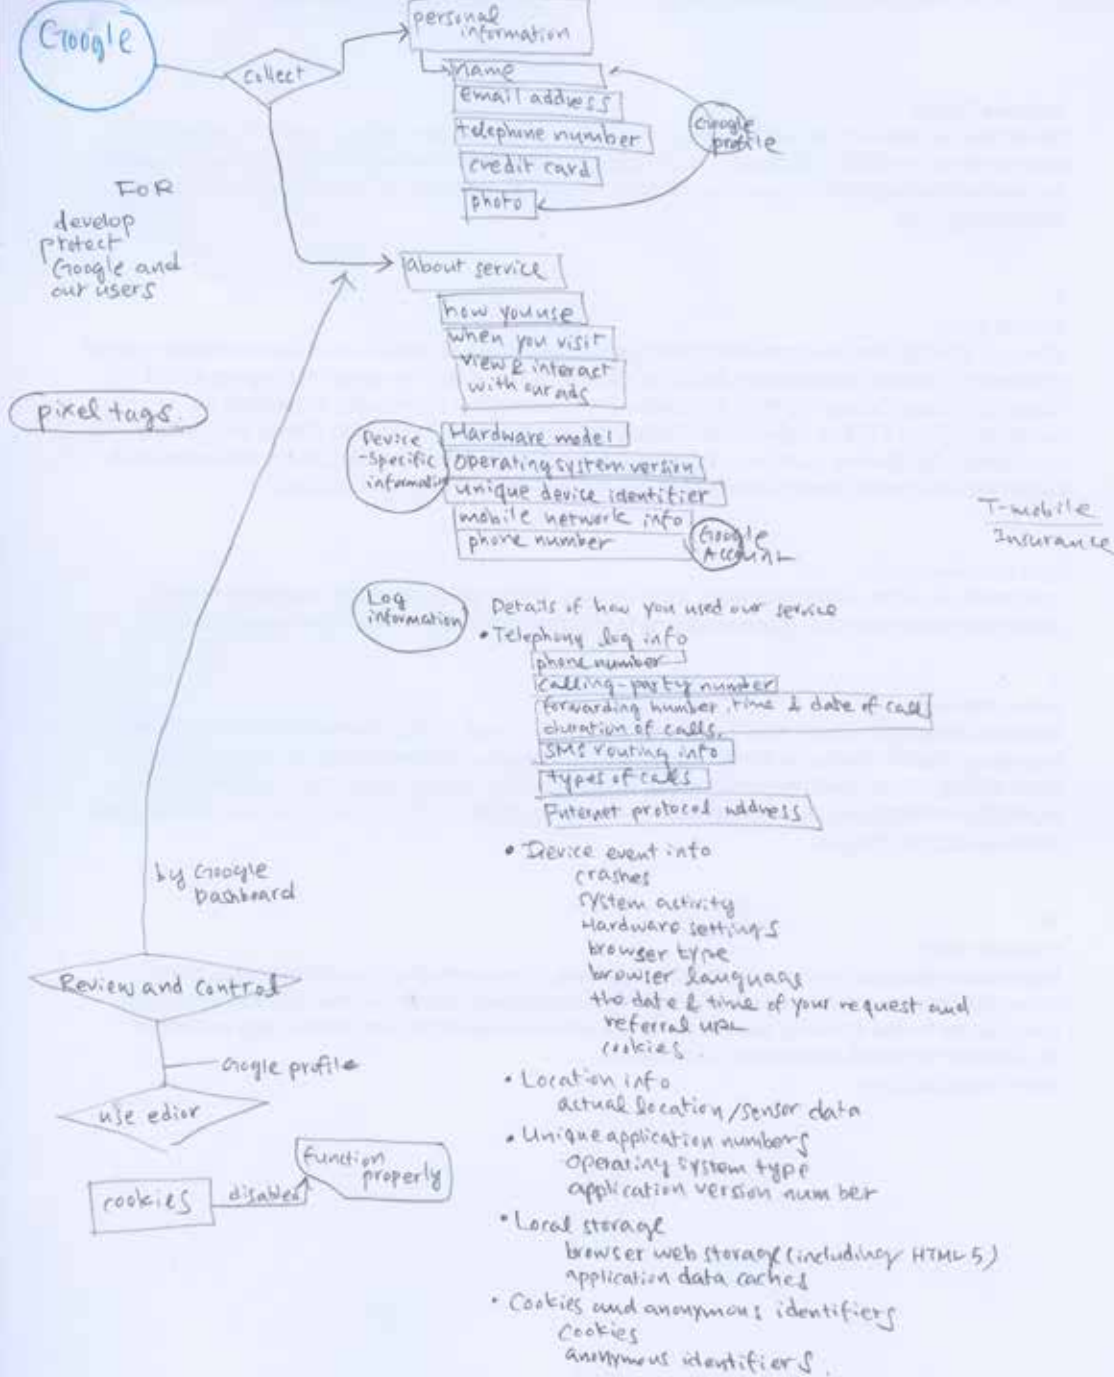 Google
collect
personal
information
name
email address
telephone number
credit card
photo
Google
profile
FOR
develop
protect
Google and
our users
about service
how you use
when you visit
view & interact
with our ads
pixel tags
Device
-Specific
information
Hardware model
operating system version
unique device identifier
mobile network info
phone number
Google
Account
T-mobile
Insurance
Log
information
Details of how you used our service
• Telephony log info
phone number
calling-party number
forwarding number, time & date of call
duration of calls,
SMS routing info
types of calls
Internet protocol address
• Device event info
crashes
system activity
Hardware settings
browser type
browser language
the date & time of your request and
referral URL
cookies.
• Location info
actual location/sensor data
• Unique application numbers
operating system type
application version number
• Local storage
browser web storage (including HTML 5)
application data caches
• Cookies and anonymous identifiers
cookies
anonymous identifiers.
by Google
Dashboard
Review and control
Google profile
use edior
cookies
disabled
function
properly